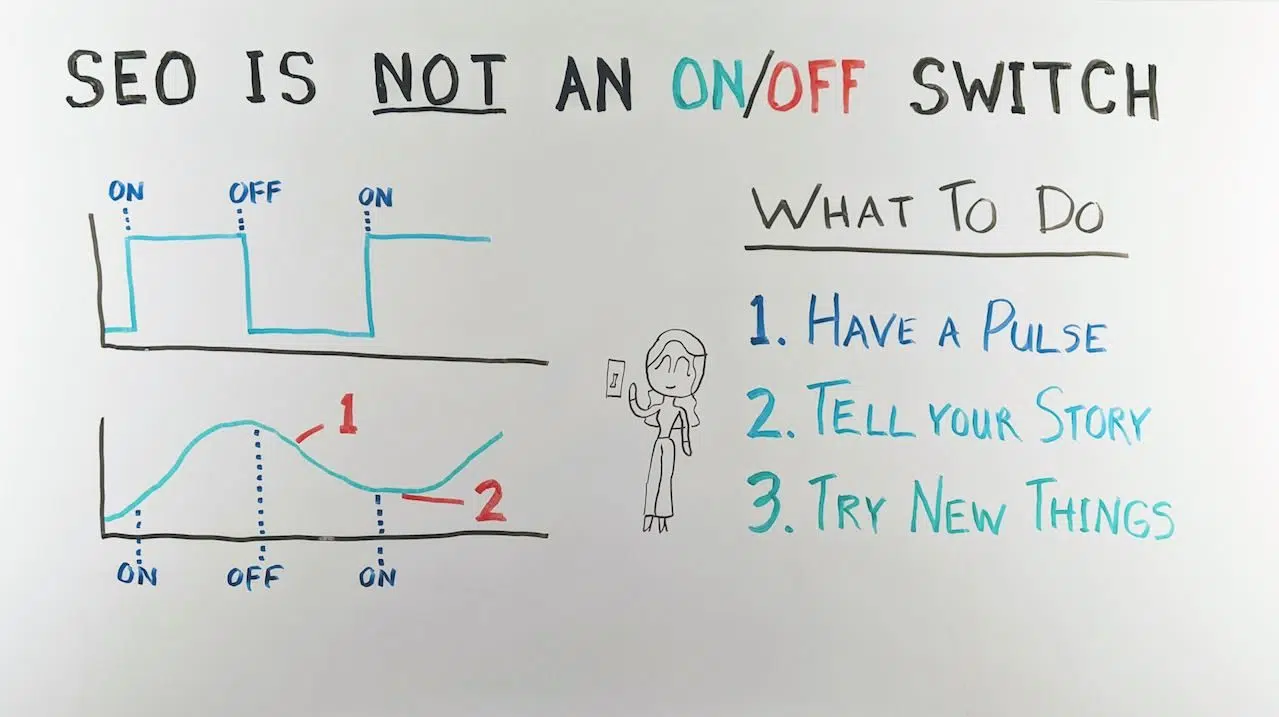 SEO IS NOT AN ON/OFF SWITCH
ON OFF ON
1
2
ON OFF ON
WHAT TO DO
1. HAVE A PULSE
2. TELL YOUR STORY
3. TRY NEW THINGS